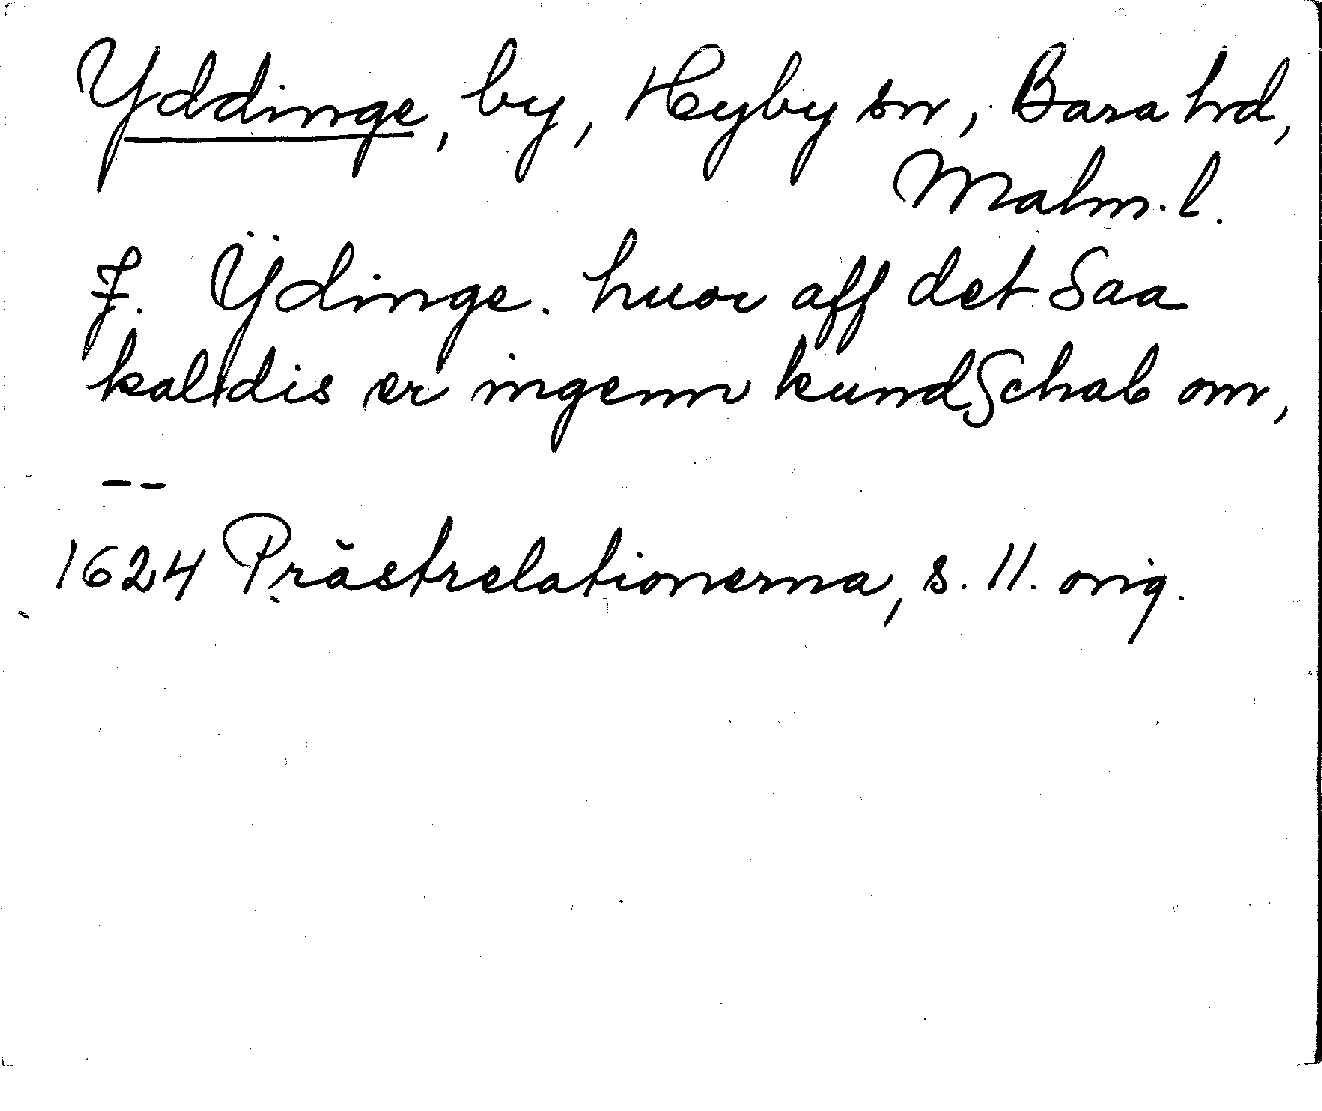 Yddinge, by, Hyby sn, Bara hd,
Malm. l.
J. Ÿdinge. huor aff det Saa
kaldis er ingenn kundSchab om,
--
1624 Prästrelationerna, s. 11. orig.